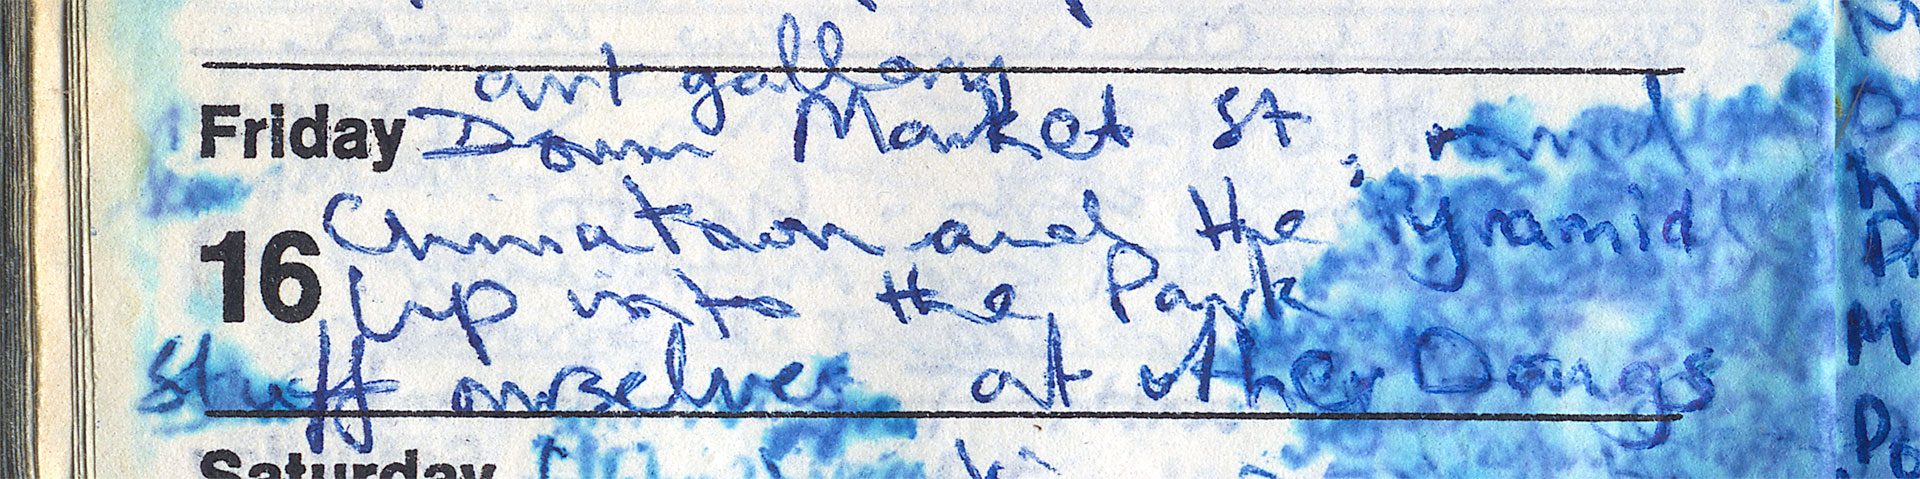 art gallery
Friday Down Market St, round
16 Chinatown and the Pyramid
up into the Park
stuff ourselves at other Dougs
Saturday